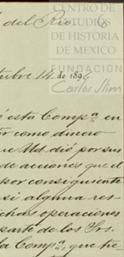 CENTRO DE
ESTUDIOS
DE HISTORIA
DE MEXICO
FUNDACIÓN
Carlos Slim
del Rio.
tubre 14 de 189
está Compª. en
tor como dinero
que Ud dió por sus
de acciones que el
por consiguiente
si alguna res
chas operaciones
parte de los Srs.
la Compª. que tie